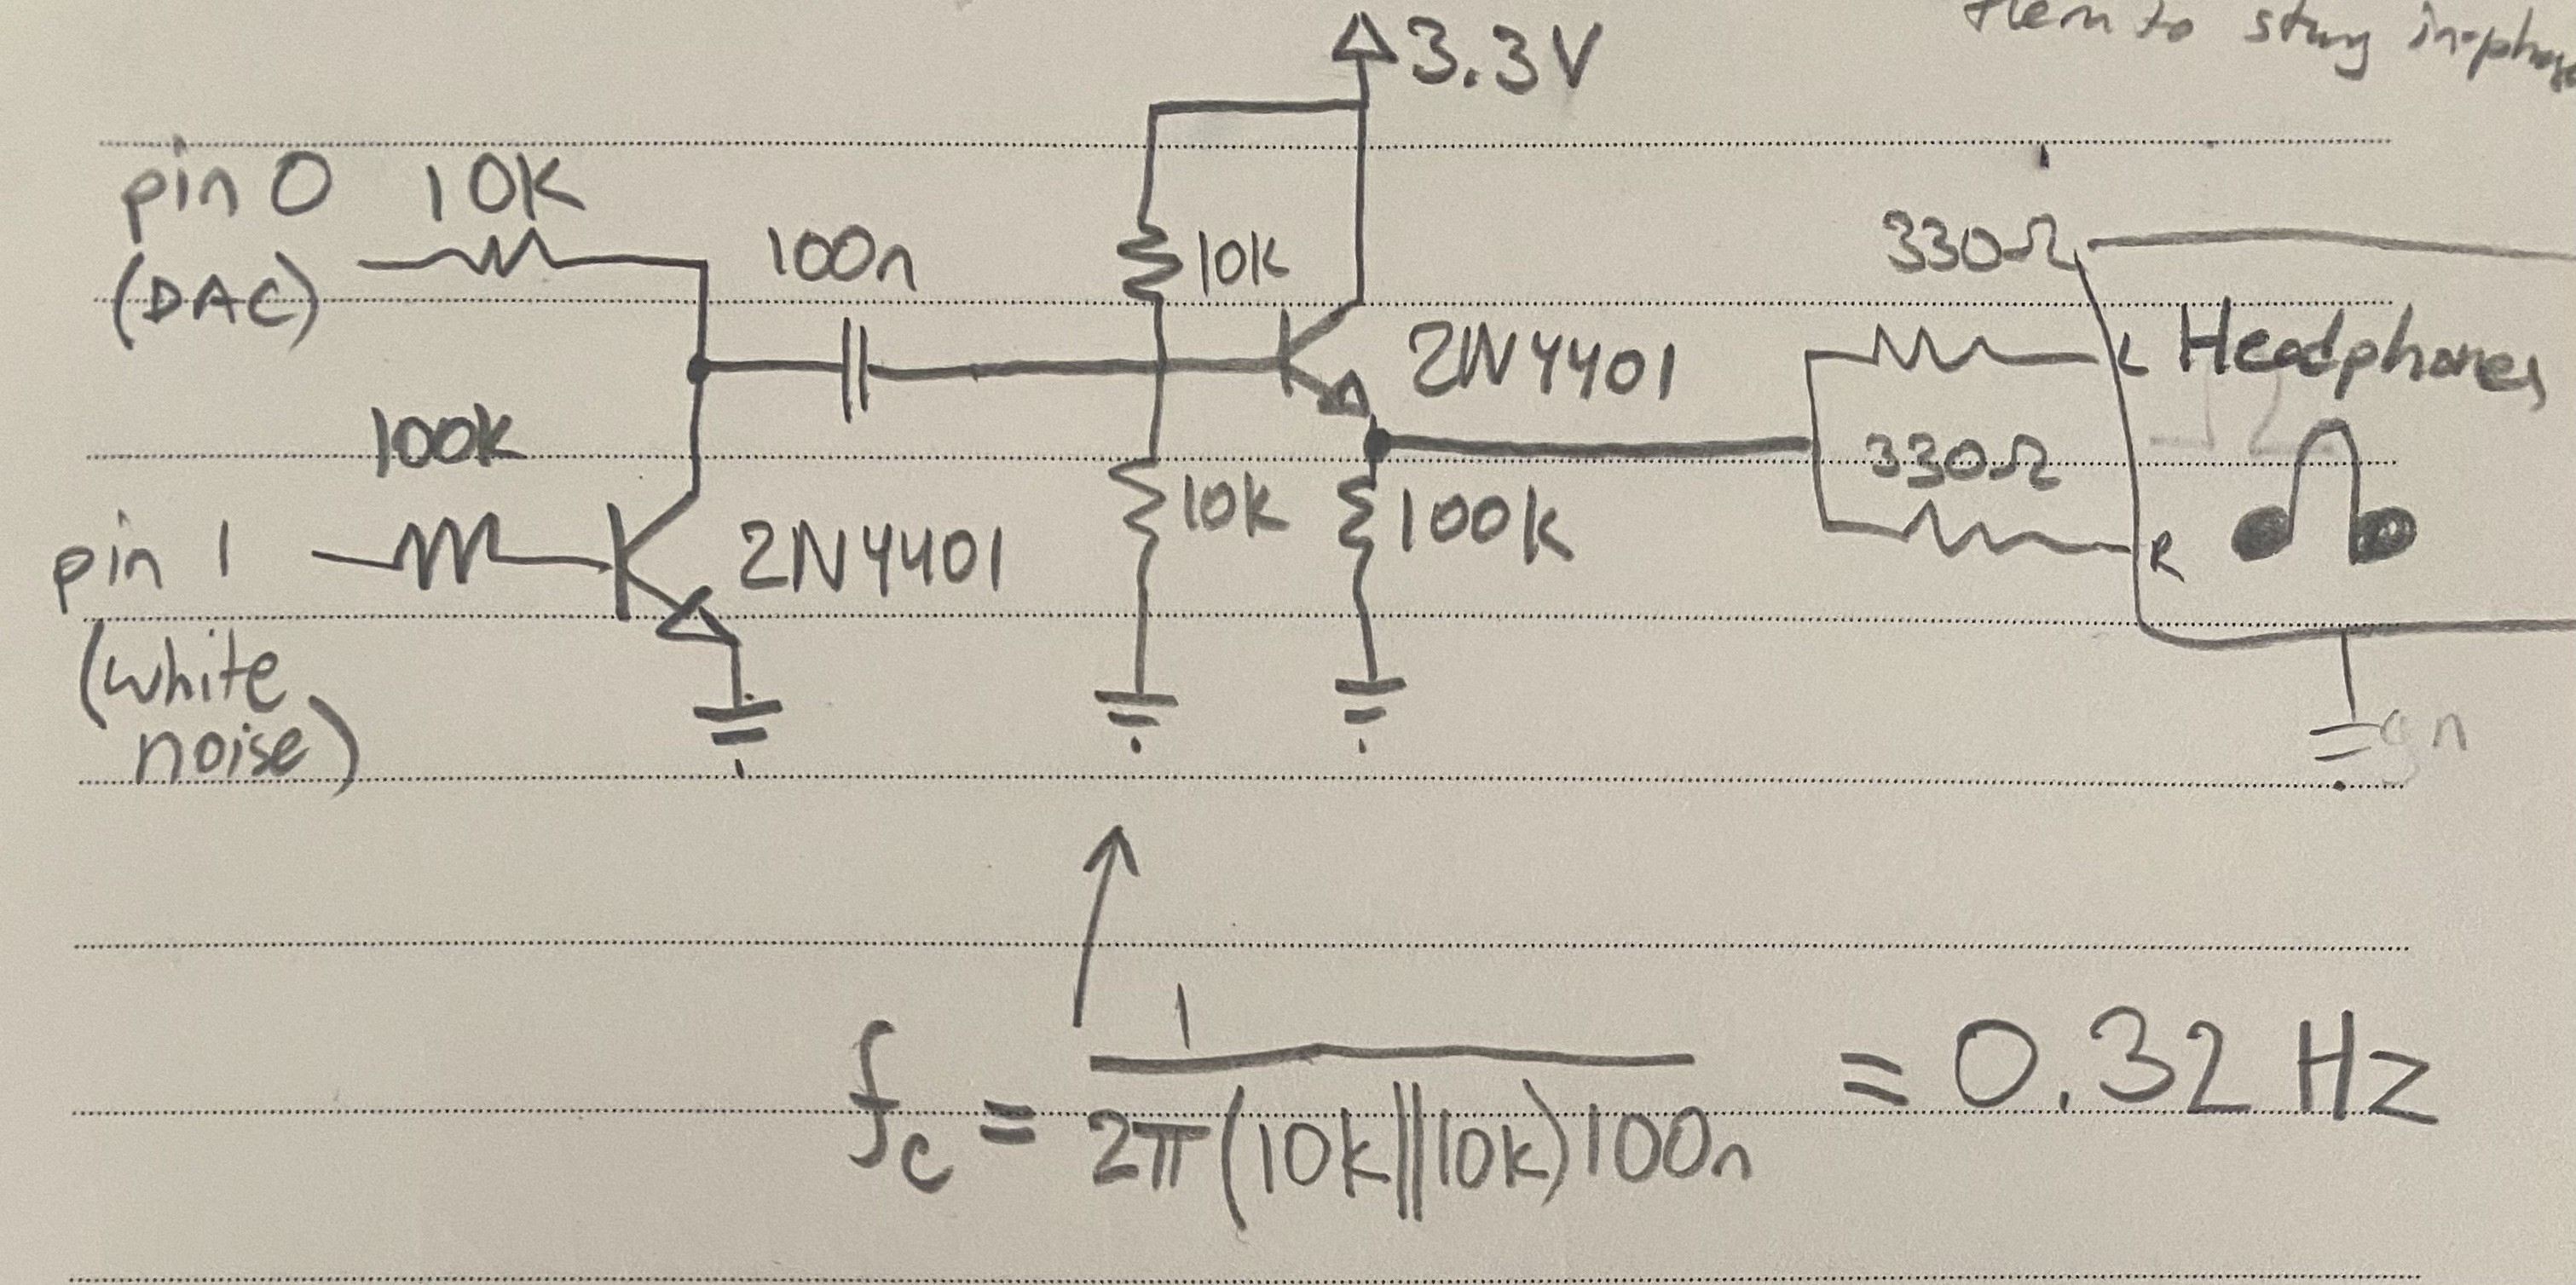 them to stay in-phase
3.3V
pin 0 10K
(DAC)
100n
10k
330Ω
2N4401
L Headphones
100k
330Ω
10k
100k
pin 1
2N4401
R
(white
noise)
gn
1
fc = ――― = 0.32 Hz
2π(10k||10k)100n